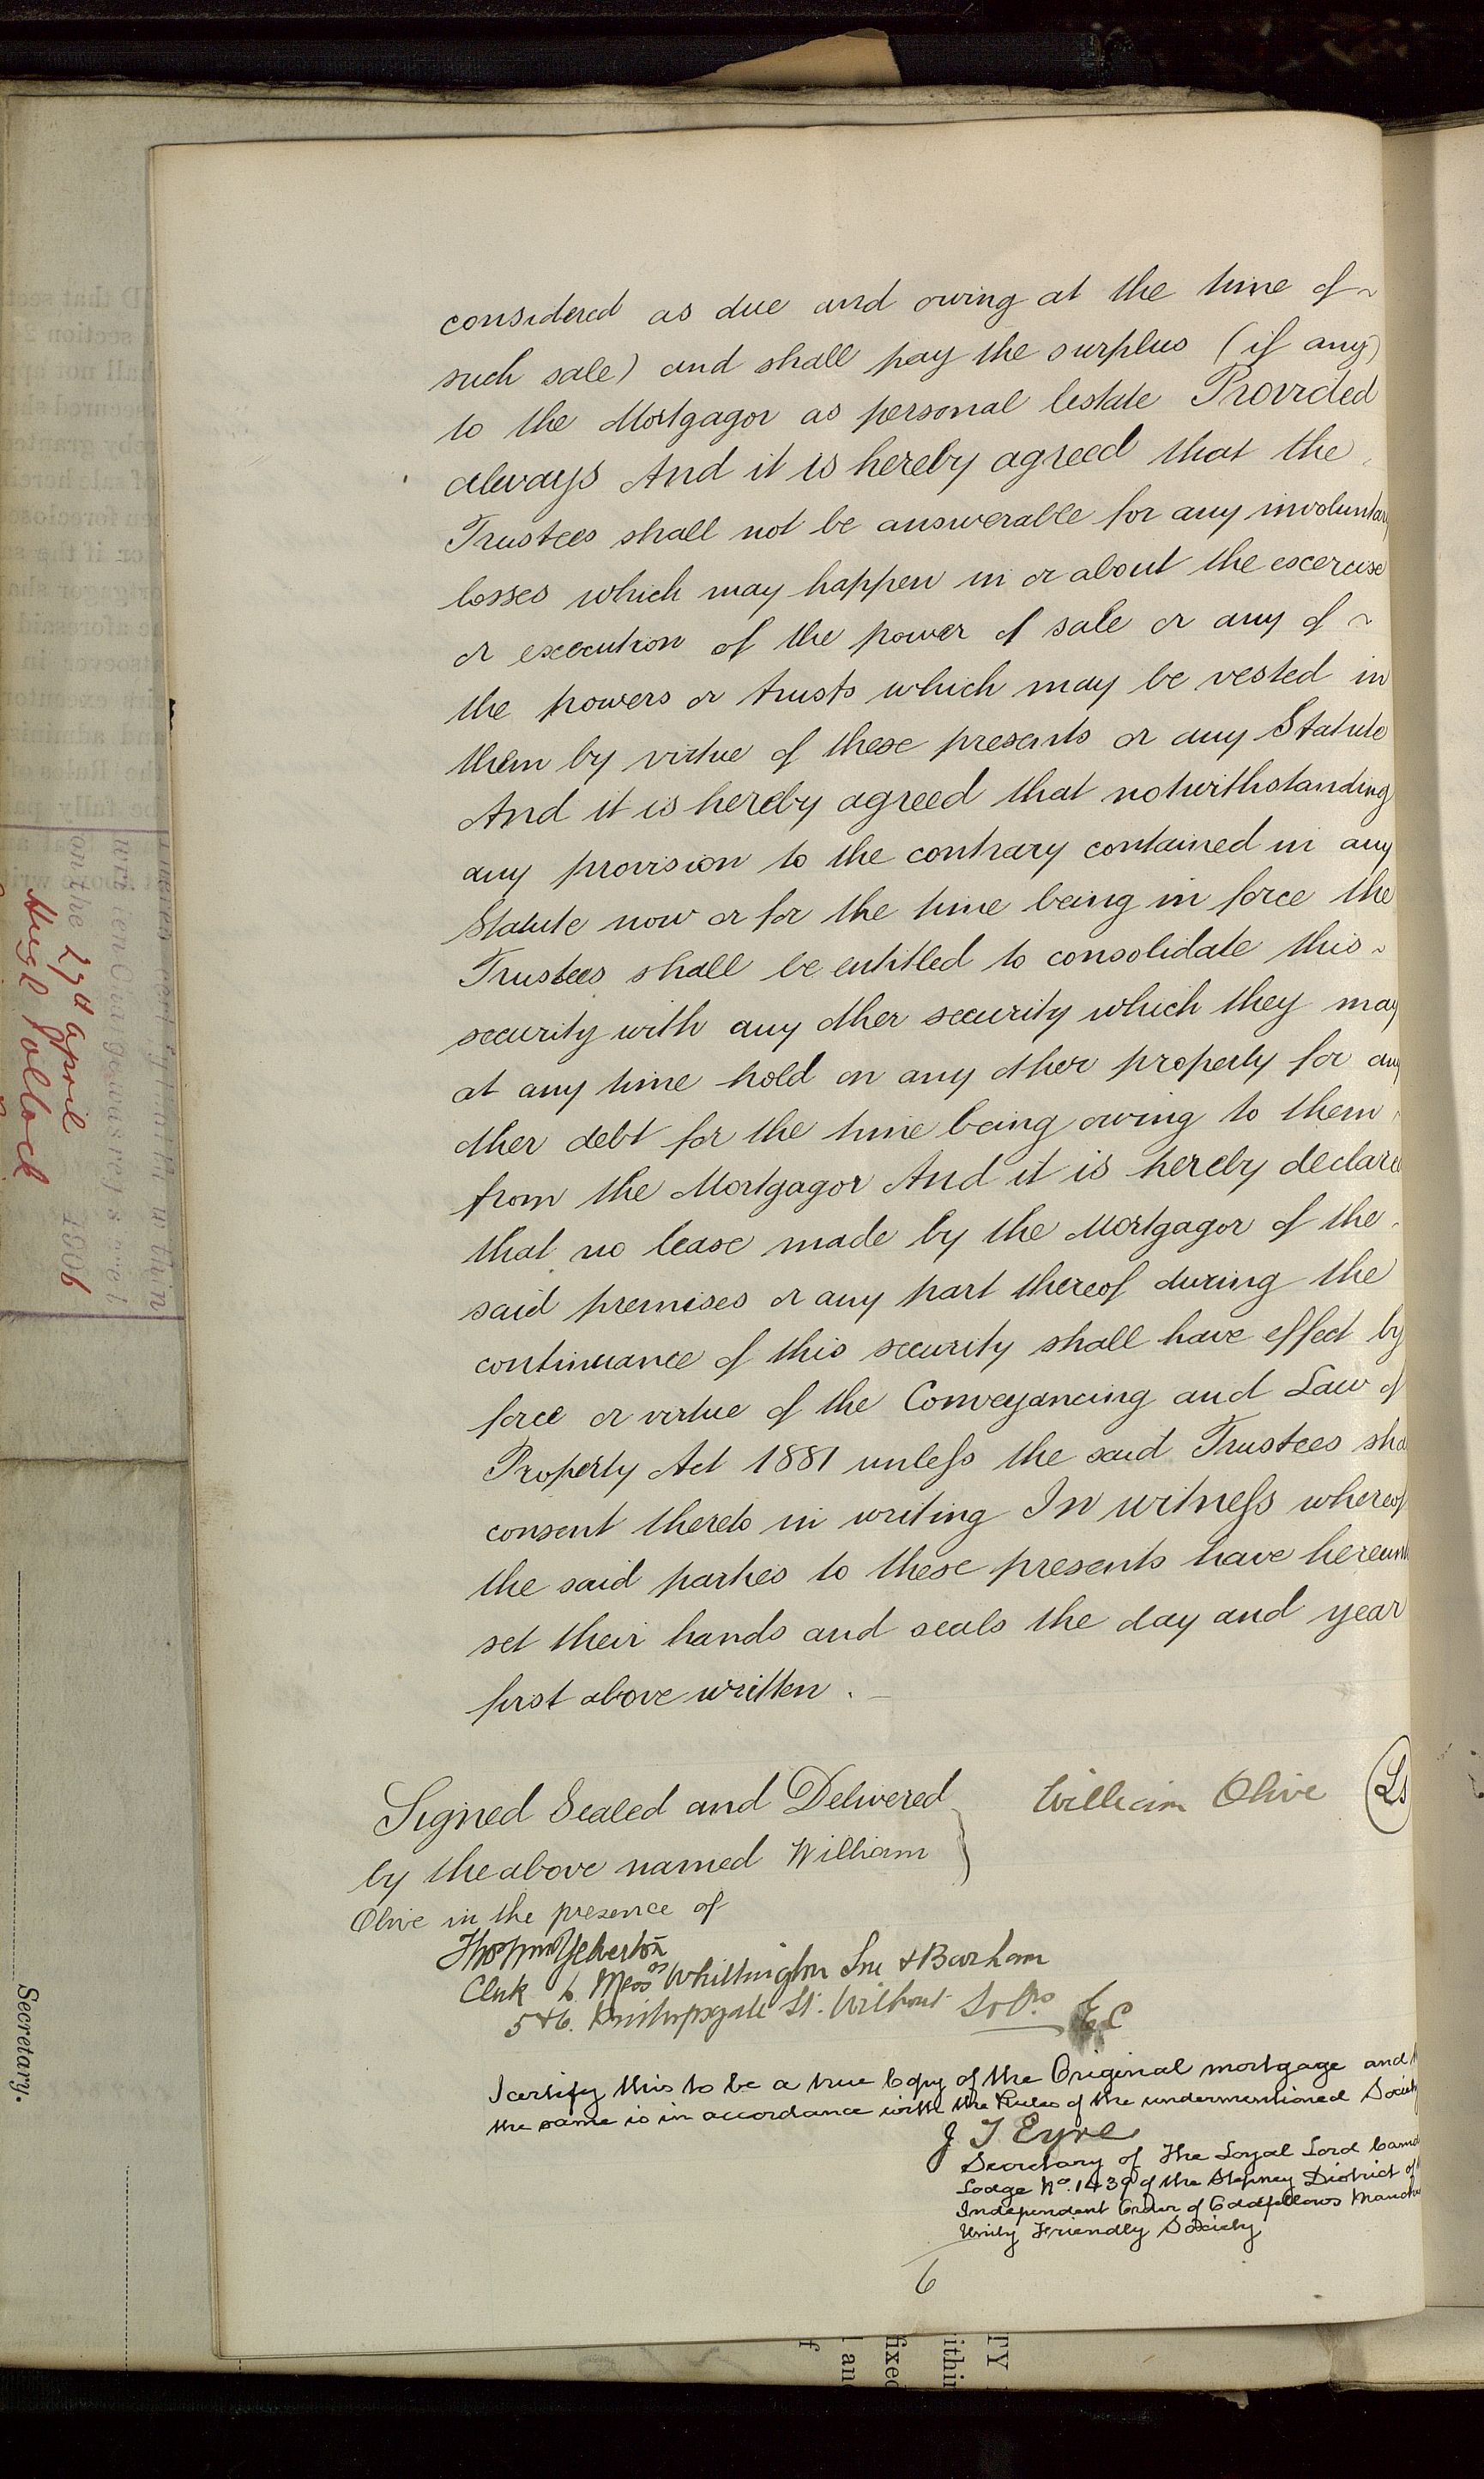 considered as due and owing at the time of ~
such sale) and shall pay the surplus (if any)
to the Mortgagor as personal Estate Provided
always And it is hereby agreed that the
Trustees shall not be answerable for any involuntary
losses which may happen in or about the excercise
or excecution of the power of sale or any of ~
the powers or trusts which may be vested in
them by virtue of these presents or any Statute
And it is hereby agreed that notwithstanding
any provision to the contrary contained in any
Statute now or for the time being in force the
Trustees shall be entitled to consolidate this ~
security with any other security which they may
at any time hold on any other property for any
other debt for the time being owing to them
from the Mortgagor And it is hereby declared
that no lease made by the Mortgagor of the
said premises or any part thereof during the
continuance of this security shall have effect by
force or virtue of the Conveyancing and Law of
Property Act 1881 unless the said Trustees sha
consent thereto in writing In witness whereof
the said parties to these presents have hereun
set their hands and seals the day and year
first above written . _
Signed Sealed and Delivered
by the above named William
Olive in the presence of
William Olive Ls
Yelverton
Clerk to Messrs Whittington Son & Barham
5 & 6. Bishopsgate St. Without Solrs EC
I certify this to be a true Copy of the Original mortgage and
the same is in accordance with the Rules of the undermentioned Society
J T Eyre
Secretary of The Loyal Lord Camd
Lodge No. 1439 of the Stepney District of
Independent Order of Oddfellows Manch
Unity Friendly Society
6
on the 27th April 1886
Hugh Pollock
Secretary.